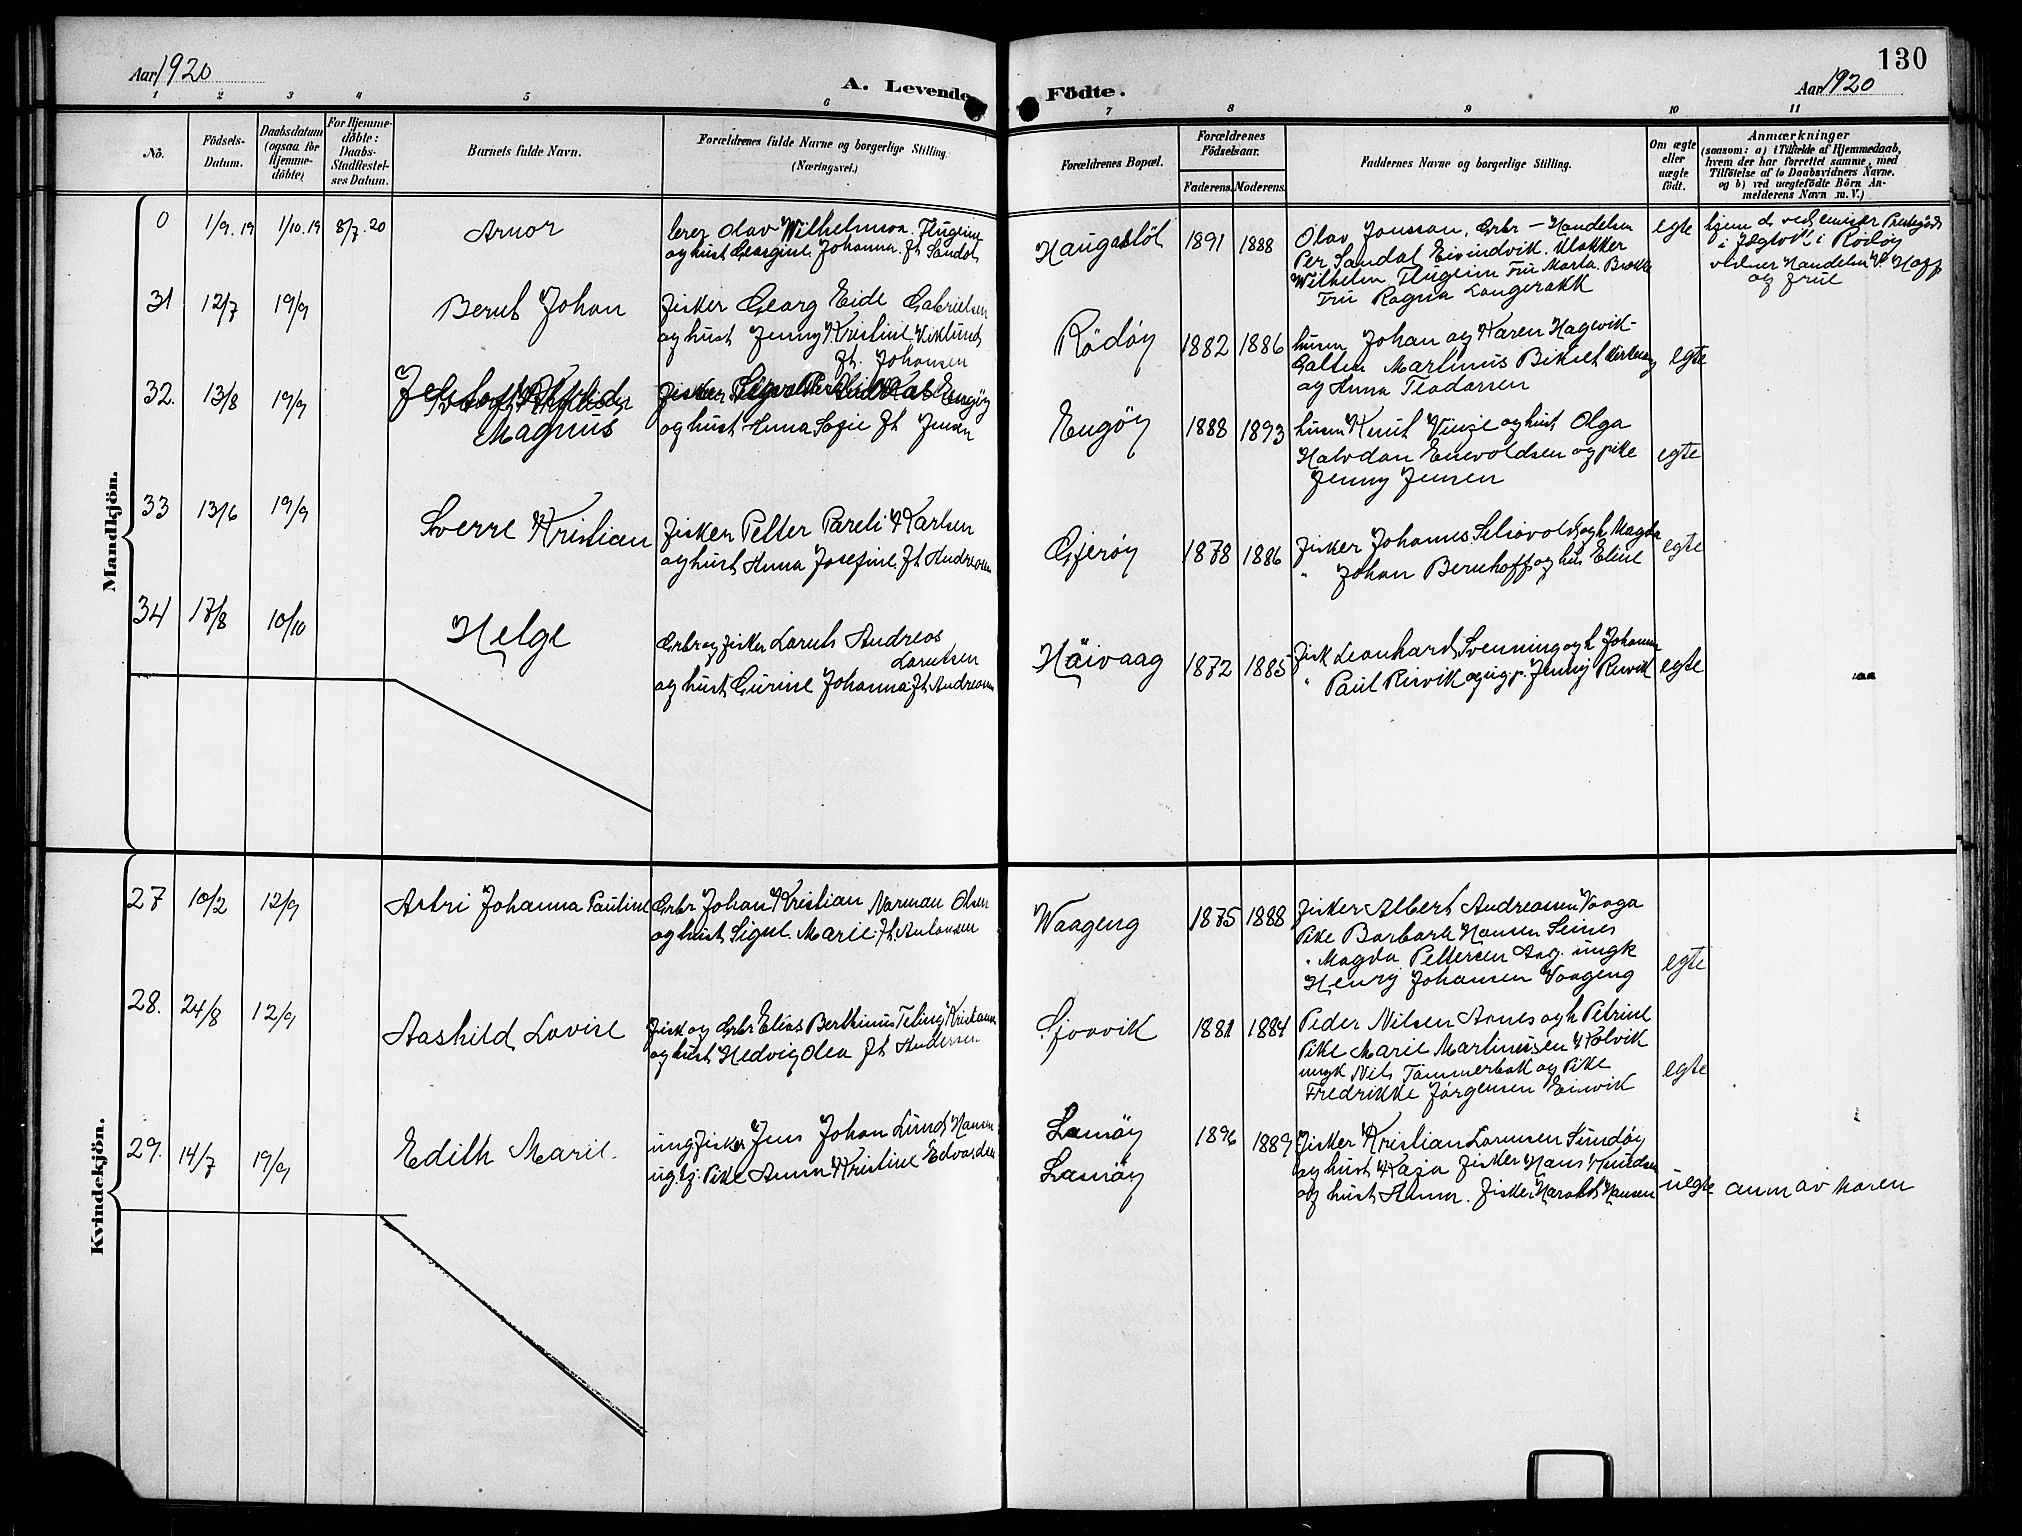 130
Aar 1920
A. Levende Födte.
Aar 1920
1 2 3 4 5 6 7 8 9 10 11
No.
Födsels-Datum.
Daabsdatum (ogsaa for Hjemmedöbte)
For Hjemmedöbte: Daabs-Stadfestelses Datum.
Barnets fulde Navn.
Forældrenes fulde Navne og borgerlige Stilling.
(Næringsvei.)
Forældrenes Bopæl.
Forældrenes Födselsaar.
Faderens. Moderens.
Faddernes Navne og borgerlige Stilling.
Om ægte eller uægte födt.
Anmærkninger
(saasom: a) i Tilfælde af Hjemmedaab,
hvem der har forrettet samme, med
Tilföielse af to Daabsvidners Navne.
og b) ved uægtefödte Börn An-
melderens Navn m. V.)
Mandkjön.
0 1/9.19 1/10.19 8/7.20 Arnor
og hust Georgine Johanna
Haugasløt 1891 1888
Olav Jonsson, Grbr - Handelsm
Per Sandal Eivindvik. Klokker
Wilhelm Flugeim Fru Marta
Fru Ragna Langerakk
egte
i Rödöy
og frue
31 12/7 19/9 Bernt Johan
Fisker Georg Eide Gabrielsen
og hust Jenny Kristine Viklund
ft. Johansen
Rödöy 1882 1886
husm Johan og Karen Hagevik-
Galten Martinus
og Anna Teodorsen
egte
32. 13/8 19/9
Magnus
Fisker
og hust Anna Sofie ft Jensen
Engöy 1888 1893
husm Knut Vinge og hust Olga
Halvdan Enevoldsen og pike
Jenny Jensen
egte
33 13/6 19/9 Sverre Kristian
Fisker Petter Pareli Karlsen
og hust Anna Josefine ft Andreasen
Gjeröy 1878 1886
Fisker Johannes Selsøvold og h Magda
" Johan Bernhoff og hus Eline
egte
34 17/8 10/10 Helge
Grbr og fisker Lorents Andreas
Lorentsen
og hust Gurine Johanna ft Andreasen
Häivaag 1872 1885
Fisk Leonhard Svenning og h Johanna
" Paul Risvik og ug p. Jenny Risvik
egte
Kvindekjön.
27 10/2 12/9 Astri Johanna Pauline
Grbr Johan Kristian Norman Olsen
og hust Signe Marie ft. Antonsen
Waageng 1875 1888
Fisker Albert Andreassen Vaaga
Pike Barbara Hansen Seines
" Magda Pettersen Aag. ungk
Henry Johansen Vaageng
egte
28. 24/8 12/9 Aashild Lovise
Fisk og Grbr Elias Berthinus Kristiansen
og hust Hedvig Olea ft Andersen
Sjovik 1881 1884
Peder Nilsen Arnes og h Petrine
Pike Marie Martinusen Kolvik
ungk Nils Tømmerbak og Pike
Fredrikke Jørgensen Einvik
egte
29. 14/7 19/9 Edith Marie.
ung fisker Jens Johan Lund Hansen
ug. tj. Pike Anna Kristine Edvardsen
1896 1889
Fisker Kristian Lorensen Sundöy
og hust Kaja Fisker Hans Knudsen
og hust Anna. Fisker Harald Hansen
uegte
anm av moren